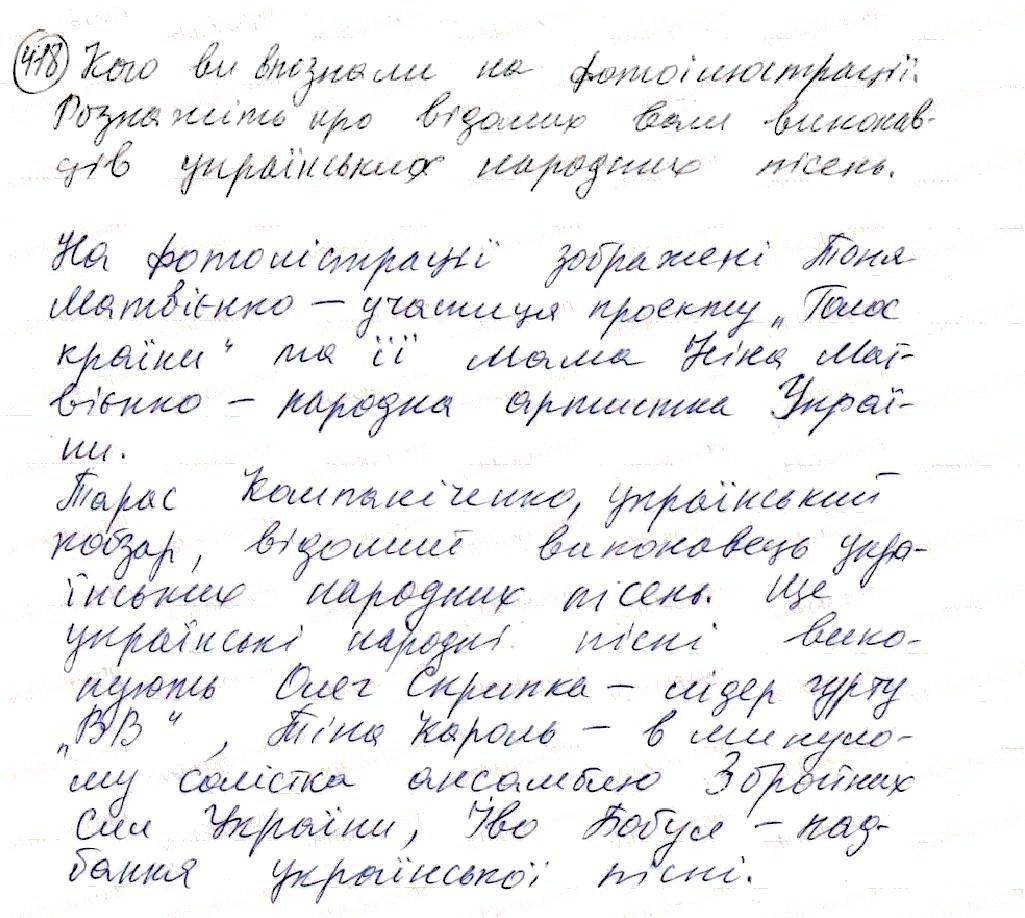 418 Кого ви впізнали на фотоілюстрації.
Розкажіть про відомих вам виконав-
ців українських народних пісень.
На фотоілістрації зображені Тоня
Матвієнко – учасниця проекту „Голос
країни" та її мама Ніна Мат-
вієнко – народна артистка Украї-
ни.
Тарас Компаніченко, український
кобзар, відомий виконавець укра-
їнських народних пісень. Ще
українські народні пісні вико-
нують Олег Скрипка – лідер гурту
„ВВ", Тіна Кароль – в минуло-
му солістка ансамблю Збройних
Сил України, Іво Бобул – над-
бання української пісні.